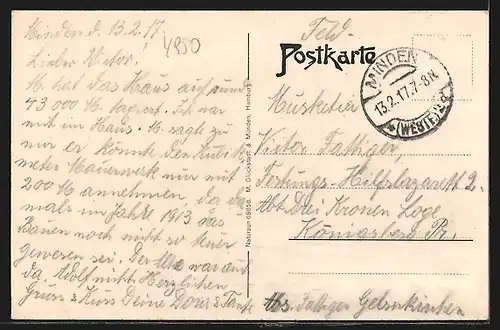 Minden d. 13.2.17.
4950
Lieber Victor!
M. hat das Haus auf rund
43 000 M. taxiert. Ich war
mit im Haus. M. sagte zu
mir er könnte den Kubik
meter Mauerwerk nur mit
200 M annehmen, da da
mals im Jahre 1813 das
Bauen noch nicht so teuer
gewesen sei. Der war auch
da, Adolf nicht. Herzlichen
Gruss & Kuss Deine
Nalraun 69658. M. Glückstadt & Minden, Hamburg
Feld-
Postkarte
MINDEN
13.2.17.7-8N.
(WESTF.)
Musketier
Victor
Festungs-Hilfslazarett 2.
Abt. Drei Kronen Loge
Königsberg Pr.
Abs. Gelsenkirchen